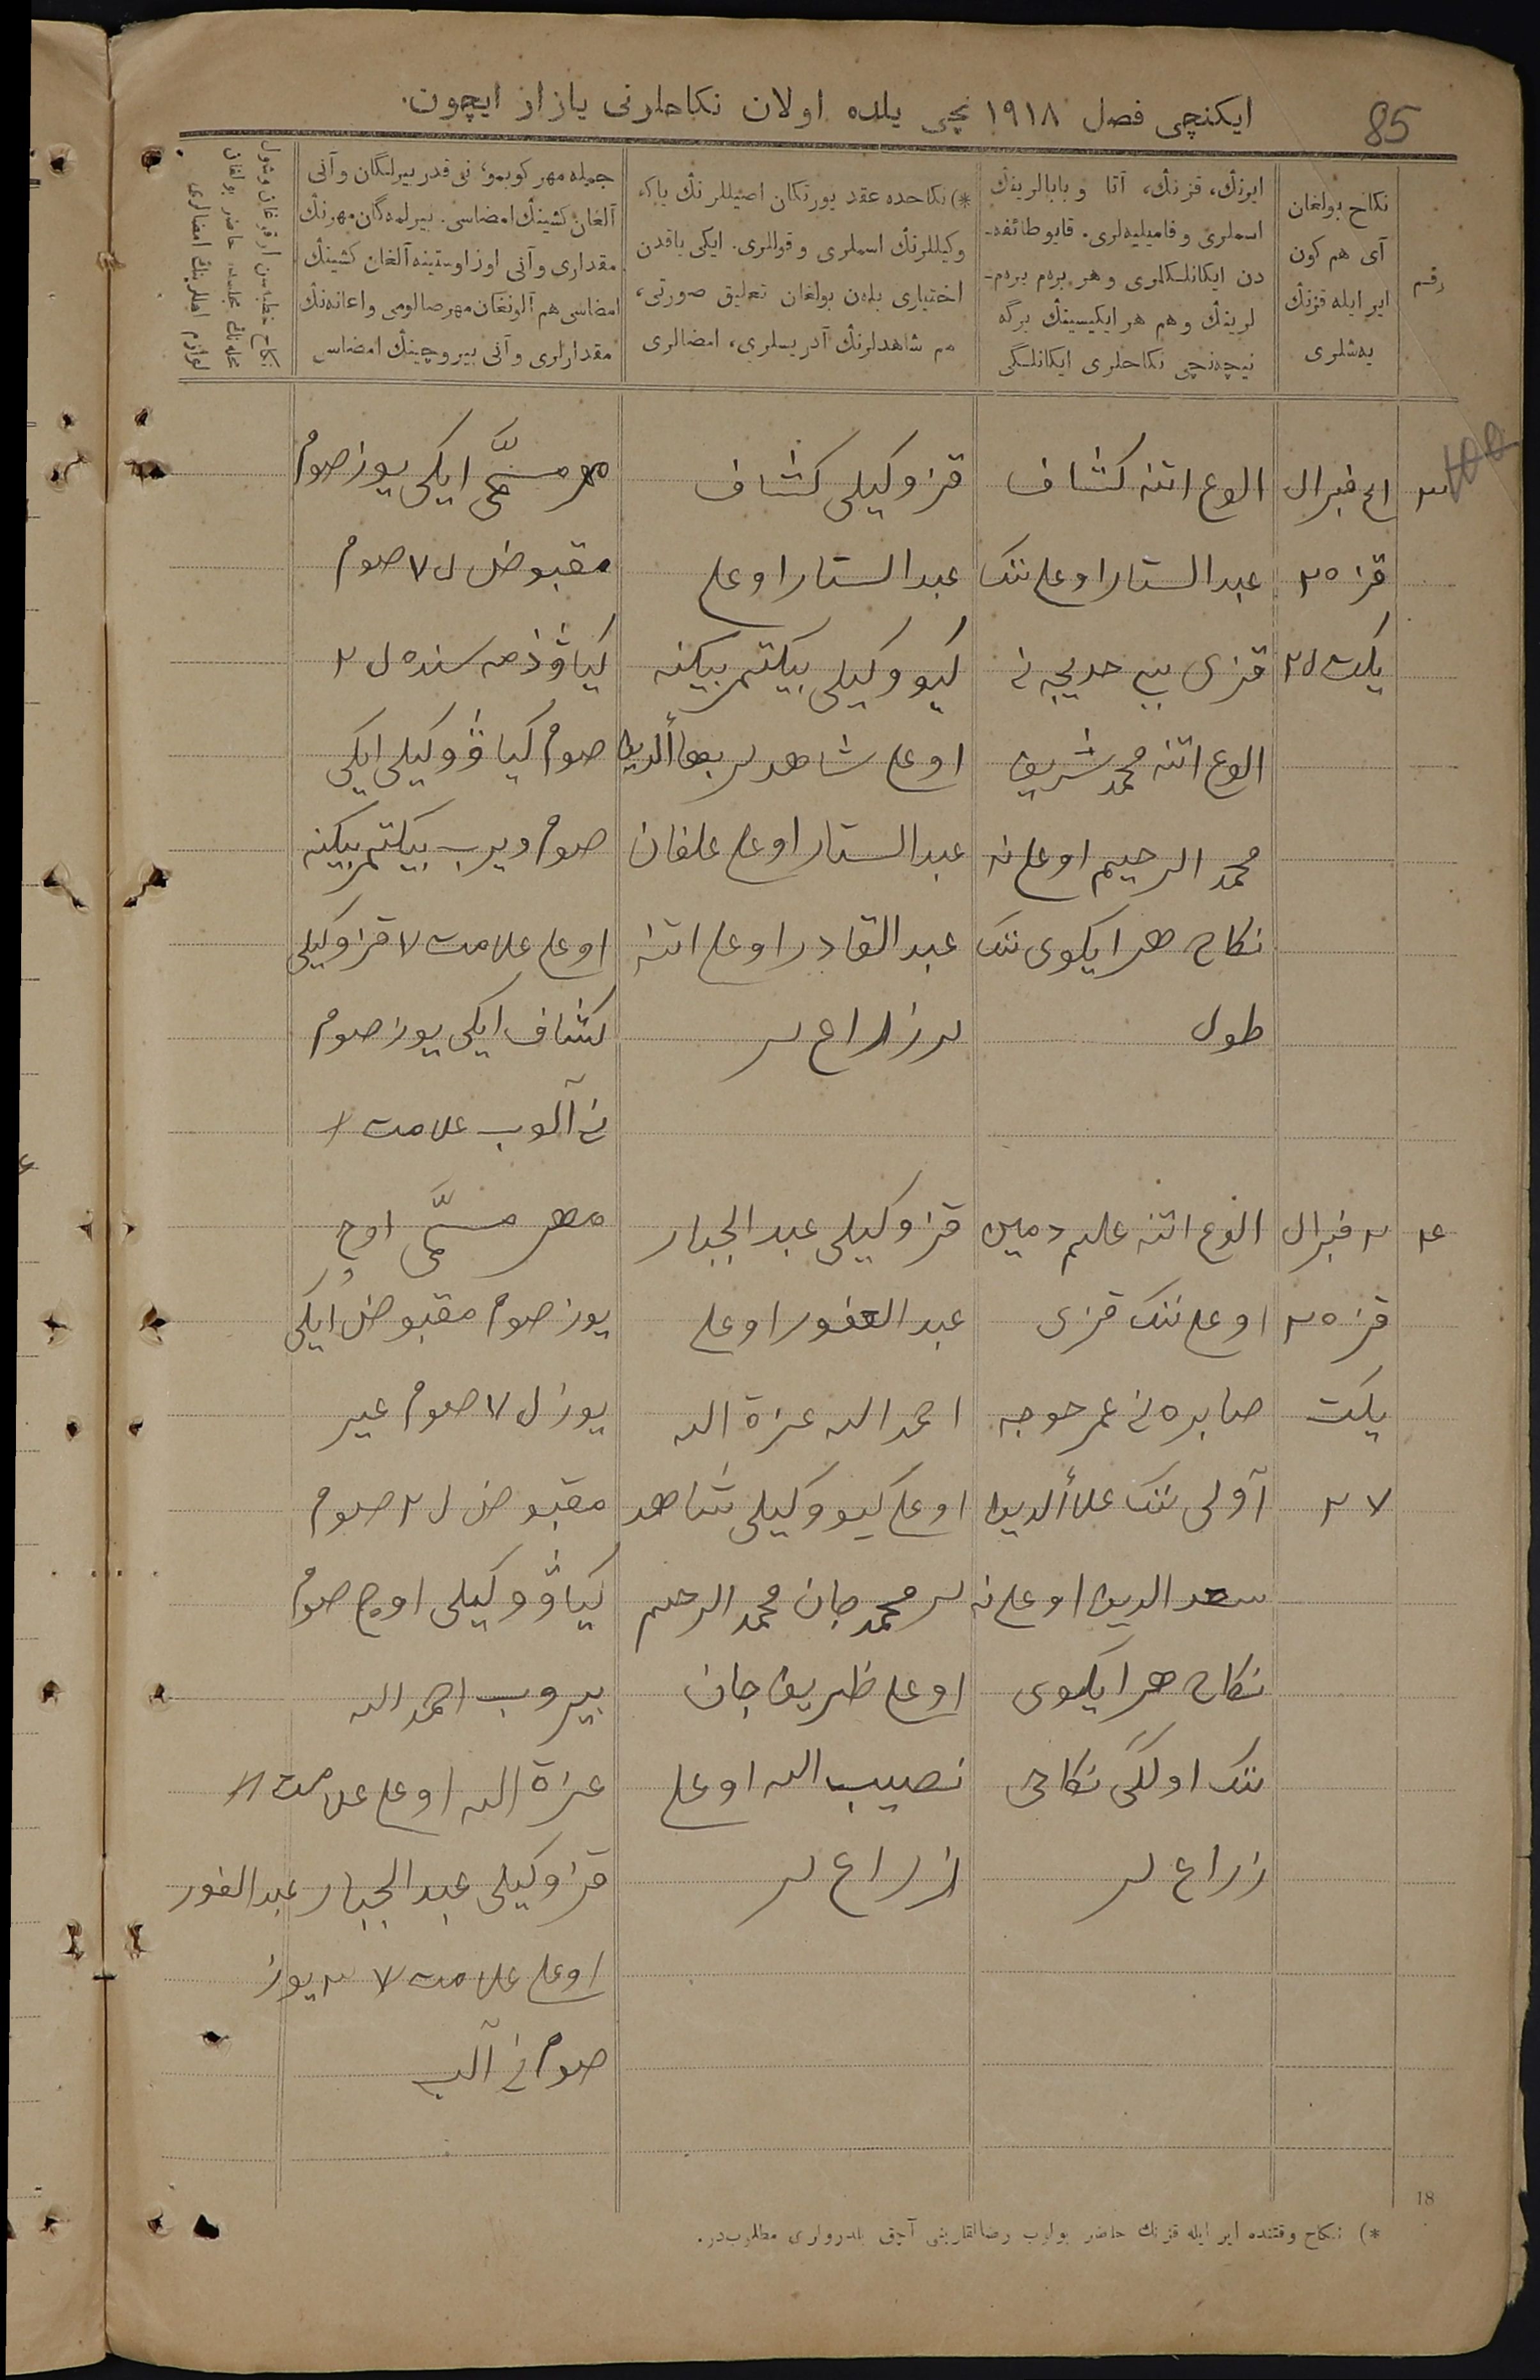 85
ایکنچی فصل ١٩١٨ نچی یلده اولان نکاحلرنی یازار ایچون.
رقم
نکاح بولغان
آی هم کون
ایر ایله قزنڭ
یه‌شلری
ایرنڭ، قزنڭ، آتا و بابالرینڭ
اسملری و فامیلیه‌لری. قایو طائفه-
دن ایکانلکلری و هر برم برم-
لرینڭ و هم هر ایکیسینڭ برگه
نیچه‌نچی نکاحلری ایکانلگی
*) نکاحده عقد یورتکان اصیللرنڭ یاکه
وکیللرنڭ اسملری و قواللری. ایکی یاقدن
اختیاری بله‌ن بولغان تعلیق صورتی،
هم شاهدلرنڭ آدریسلری، امضالری
جمیله مهر کوبمو، نی قدر بیرلگان و آنی
آلغان کشینڭ امضاسی. بیرلمه‌گان مهرنڭ
مقداری و آنی اوز اوستینه آلغان کشینڭ
امضاسی هم آلونغان مهر صالومی و اعانه‌نڭ
مقدارلری و آنی بیروچینڭ امضاسی
٣
فبرال
قز ٢٥
یکت
الوغ اتنه کشاف
عبد الستار اوغلی ننک
قزی بیبی خدیجه نی
الوغ اتنه محمد شریف
محمد الرحیم اوغلی نه
نکاح هر ایکوی ننک
طول
قز وکیلی کشاف
عبد الستار اوغلی
کیو وکیلی بیکتمر بیکنه
اوغلی شاهدلر بهاألدین
عبد الستار اوغلی علفان
عبد القادر اوغلی اتنه
لر زراع لر
مهر مسمّی ایکی یوز صوم
مقبوض ل ٧ صوم
کیاڤ ذمه سنده ل ٢
صوم کیاڤ وکیلی ایکی
صوم ویرب بیکتمر بیکنه
اوغلی علامت ٧ قز وکیلی
کشاف ایکی یوز صوم
نی آلوب علامت /
٤
٢ فبرال
قز ٢٥
یکت
٢٧
الوغ اتنه علیم دمین
اوغلی ننک قزی
صابره نی عمر خوجه
آولی ننک علاألدین
سعد الدین اوغلی نه
نکاح هر ایکوی
ننک اولگی نکاحی
زراع لر
قز وکیلی عبد الجبار
عبد الغفور اوغلی
احمد الله عزة الله
اوغلی کیو وکیلی شاهد
لر محمد جان محمد الرحیم
اوغلی ظریف جان
نصیب الله اوغلی
زراع لر
مهر مسمّی اوچ
یوز صوم مقبوض ایکی
یوز ل ٧ صوم غیر
مقبوض ل ٢ صوم
کیاڤ وکیلی اوچ صوم
بیروب احمد الله
عزة الله اوغلی علامت //
قز وکیلی عبد الجبار عبد الغفور
اوغلی علامت ٧ ٣ یوز
صوم نی آلب
18
*) نکاح وقتنده ایر ایله قزنڭ حاضر بولوب رضالقلرینی آچق بلدرولری مطلوب‌در.